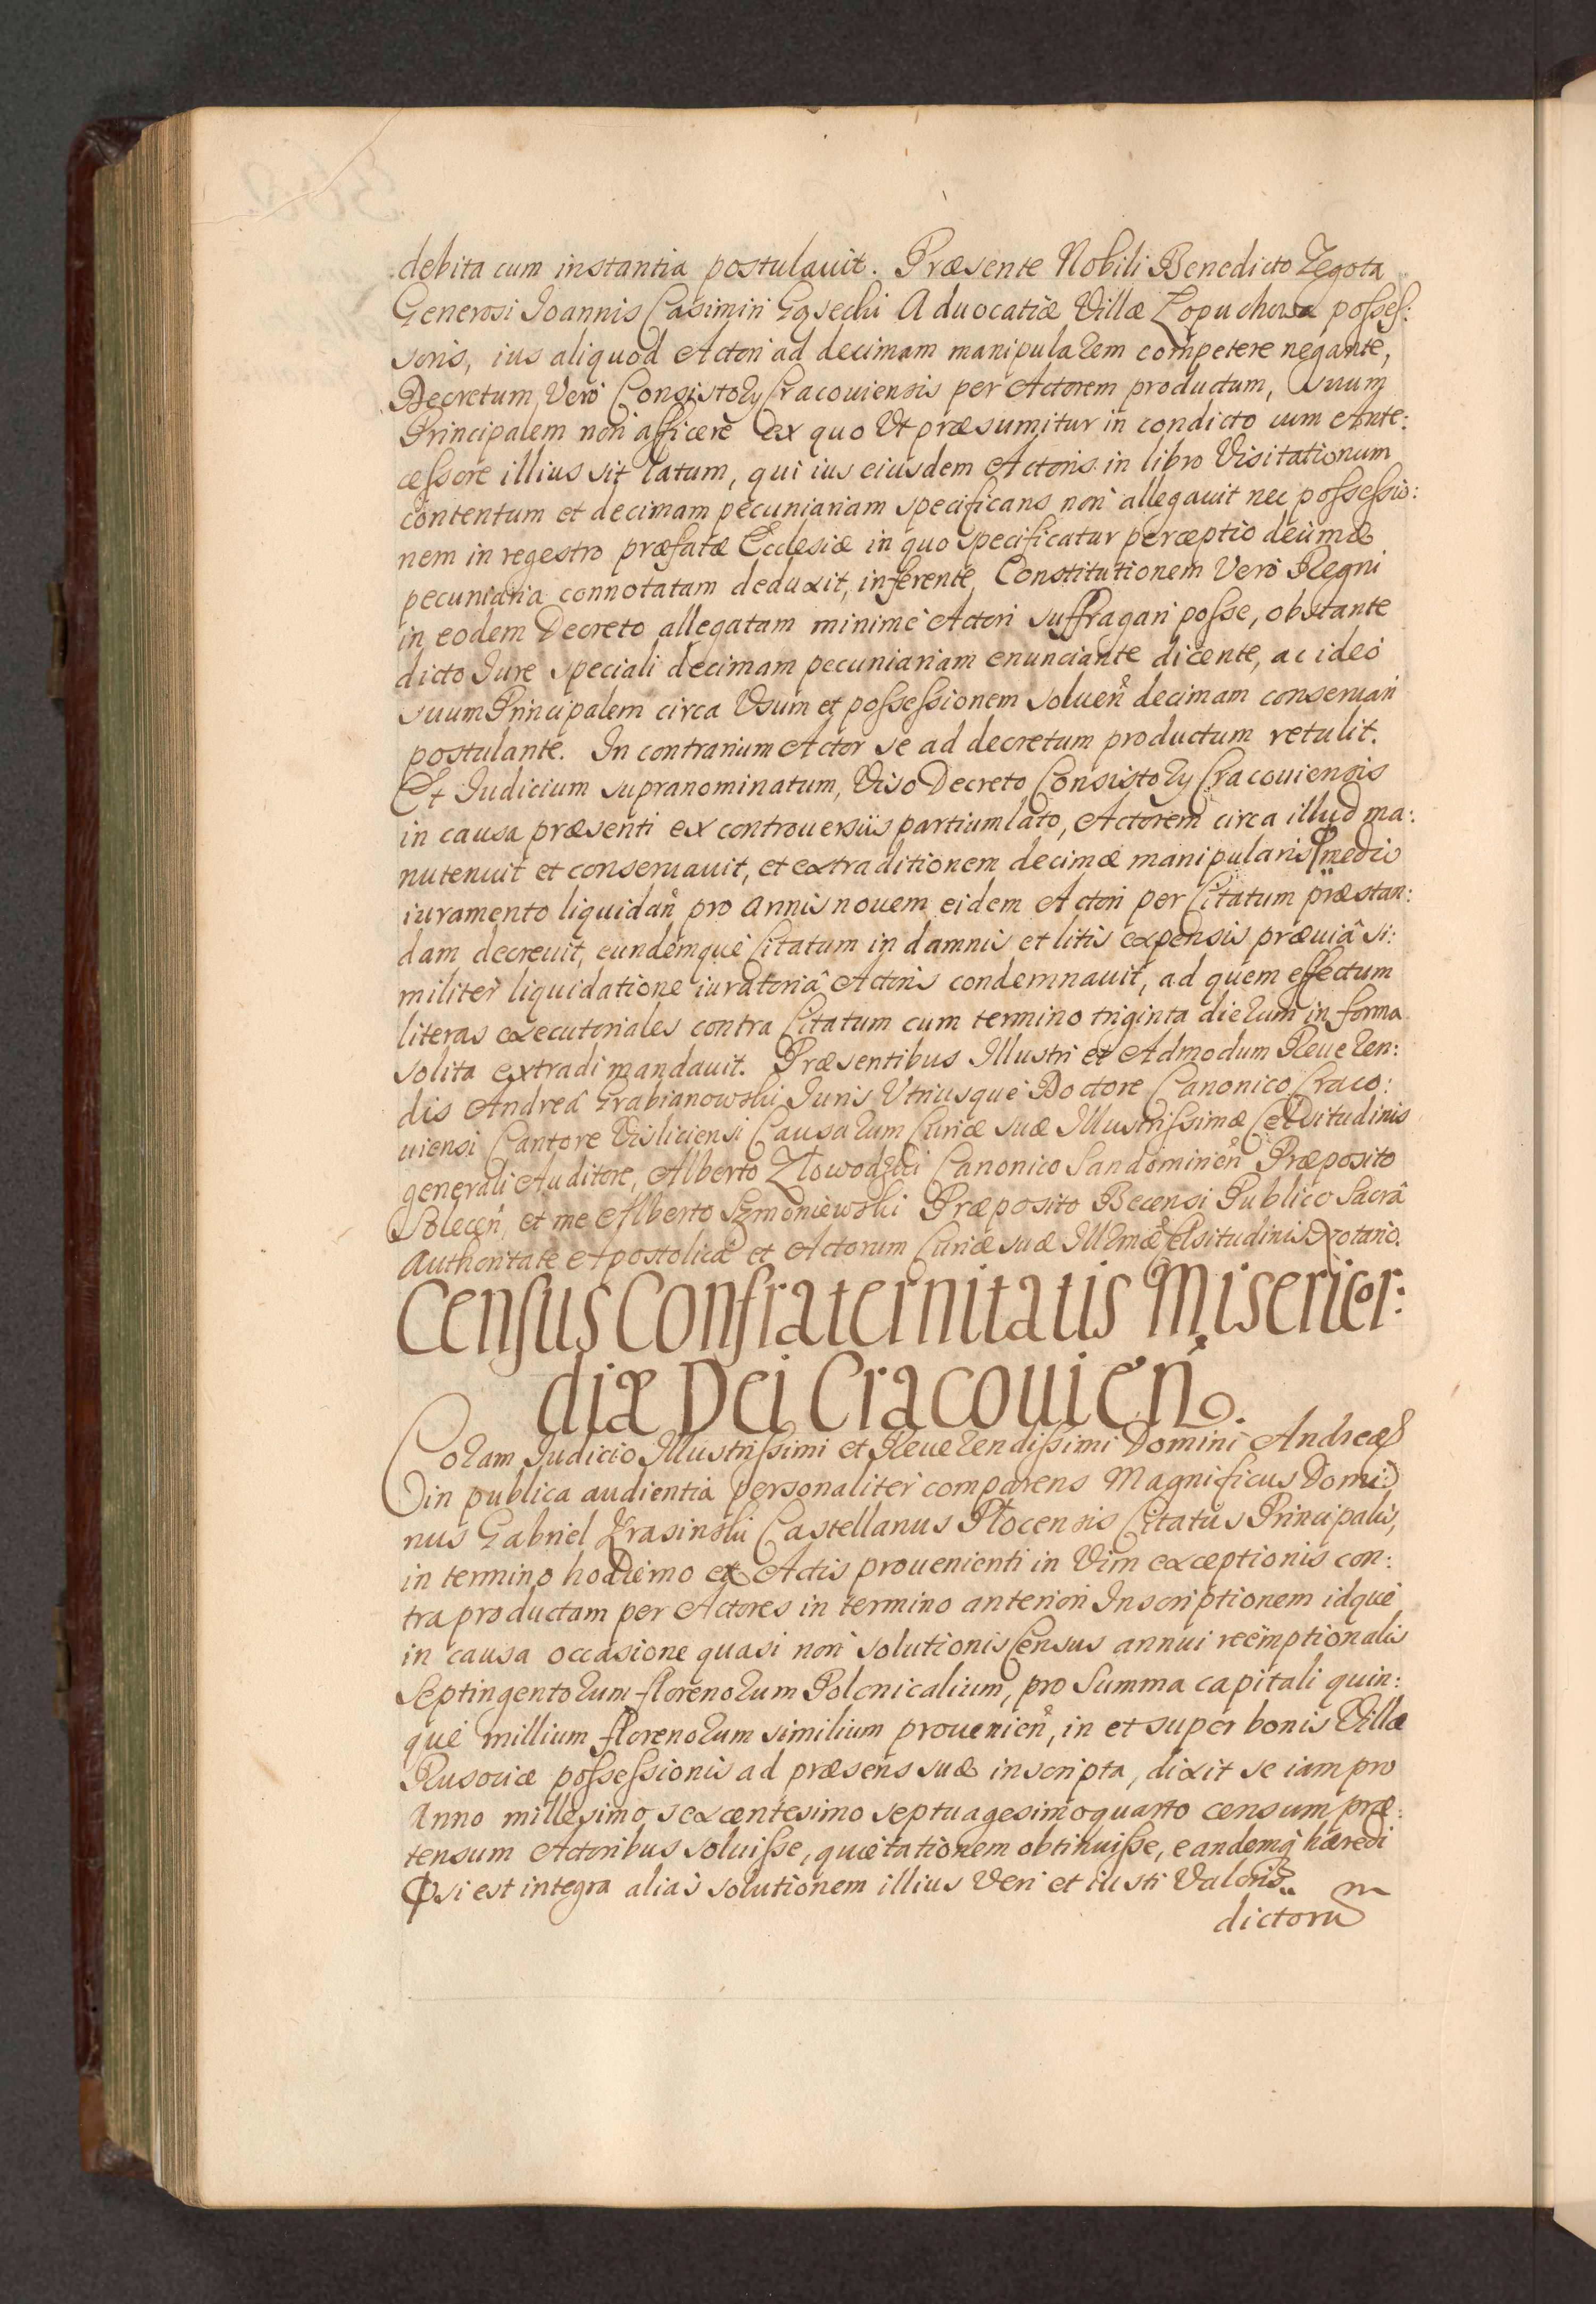 debita cum instantia postulauit. Præsente Nobili Benedicto Zegota
Generosi Joannis Casimiri Aduocatiæ Villæ Lopuchowa posses:
soris, ius aliquod Actori ad decimam manipularem competere negante,
Decretum Verò Consistorij Cracouiensis per Actorem productum, suum
Principalem non afficere ex quo Vt præsumitur in condicto cum Ante:
cessore illius sit latum, qui ius eiusdem Actoris in libro Visitationum
contentum et decimam pecuniariam specificans non allegauit nec possessio:
nem in regestro præfatæ Ecclesiæ in quo specificatur perceptio decimæ
pecuniaria connotatam deduxit, inferente, Constitutionem Verò Regni
in eodem Decreto allegatam minimè Actori suffragari posse, obstante
dicto Jure speciali decimam pecuniariam enunciante dicente, ac ideò
suum Principalem circa Vsum et possessionem soluen̄ decimam conseruari
postulante. In contrarium Actor se ad decretum productum retulit.
Et Judicium supranominatum, Viso Decreto Consistorij Cracouiensis
in causa præsenti ex controuersijs partium lato, Actorem circa illud ma:
nutenuit et conseruauit, et extraditionem decimæ manipularis medio
iuramento liquidan̄ pro annis nouem eidem Actori per Citatum præstan:
dam decreuit, eundemquè Citatum in damnis et litis expensis præuiâ si:
militer liquidatione iuratoriâ Actoris condemnauit, ad quem effectum
literas executoriales contra Citatum cum termino triginta dierum in forma
solita extradi mandauit. Præsentibus Illustri et Admodum Reueren:
dis Andreâ Grabianowski Juris Vtriusque Doctore Canonico Craco:
uiensi Cantore Visliciensi Causarum Curiæ suæ Illustrissimæ Celsitudinis
generali Auditore, Alberto Zlowodzki Canonico Sandomirien̄ Præposito
Solecen̄, et me Alberto Szmoniewski Præposito Becensi Publico Sacrâ
Authoritate Apostolicâ et Actorum Curiæ suæ Illmæ Celsitudinis Notario.
Census Confraternitatis Misericor:
diæ Dei Cracouien̄.
Coram Judicio Illustrissimi et Reuerendissimi Domini Andreæ
in publica audientia personaliter comparens Magnificus Domi:
nus Gabriel Krasinski Castellanus Plocensis Citatus Principalis,
in termino hodierno ex Actis prouenienti in Vim exceptionis con:
tra productam per Actores in termino anteriori Inscriptionem idque
in causa occasione quasi non solutionis Census annui reemptionalis
Septingentorum florenorum Polonicalium, pro Summa capitali quin:
què millium florenorum similium prouenien̄, in et super bonis Villæ
Rusociæ possessionis ad præsens suæ inscripta, dixit se iam pro
Anno millesimo sexcentesimo septuagesimo quarto censum præ:
tensum Actoribus soluisse, quietationem obtinuisse, eandemq̀ hæredi
si est integra aliàs solutionem illius Veri et iusti Valoris
dictorum